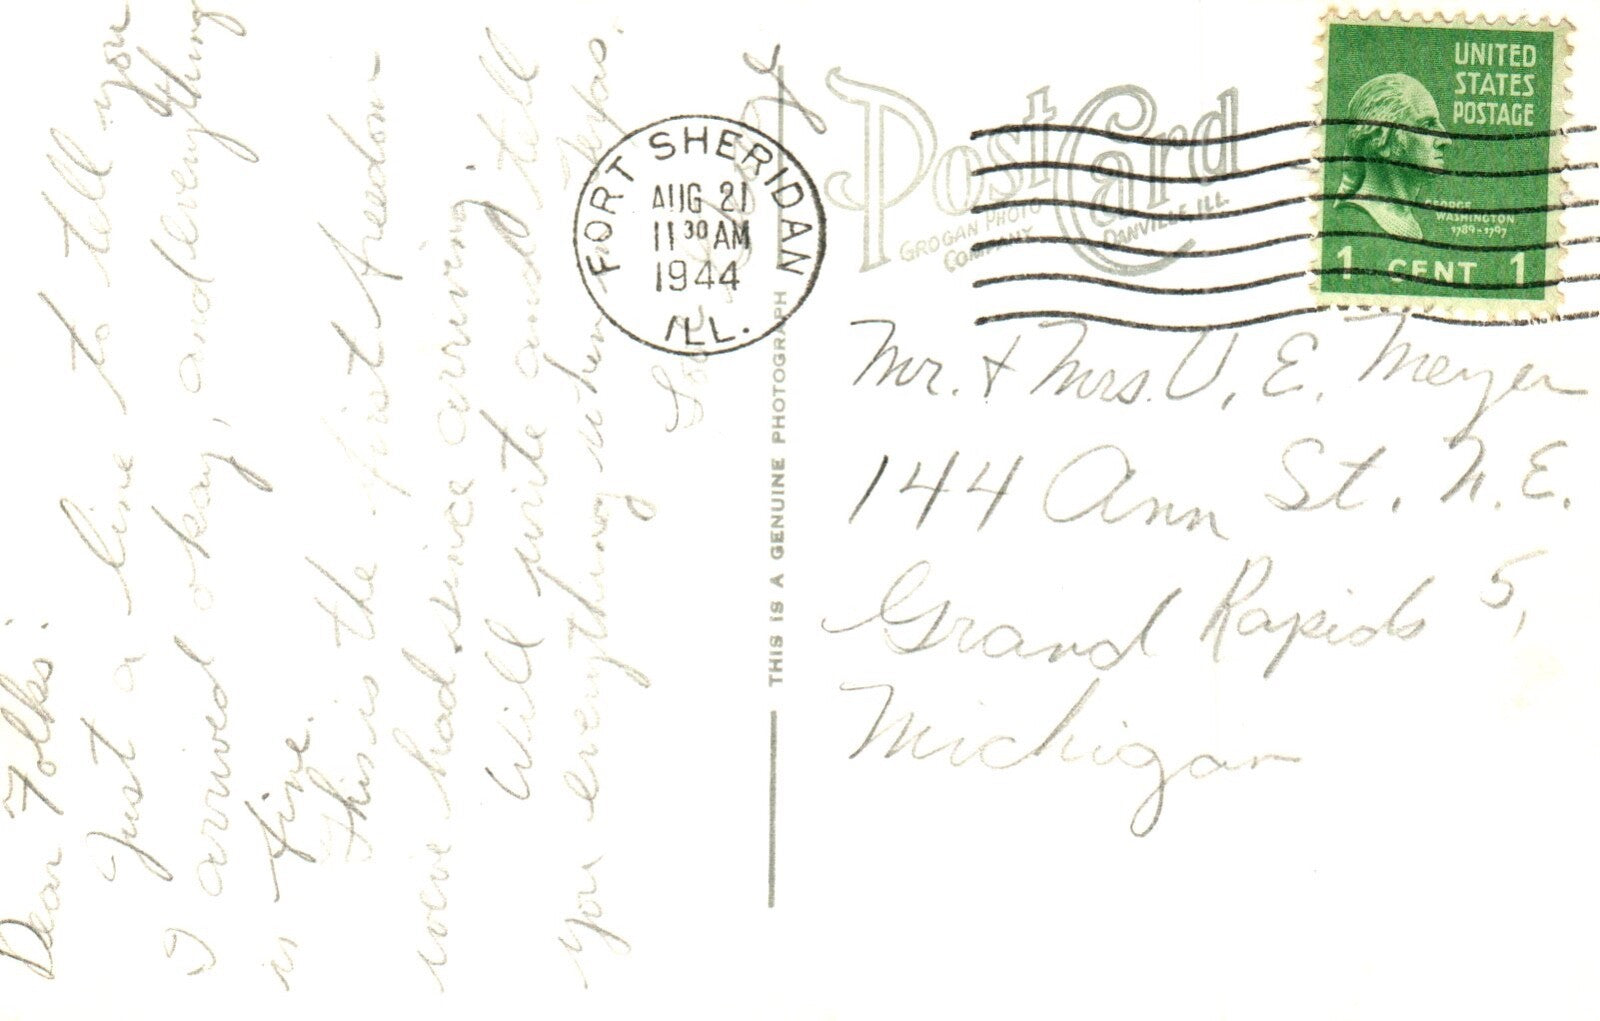 Dear Folks:
Just a line to tell you
I arrived okay, and everything
is fine.
This is the first freedom
we've had since arriving.
Will write and tell
you everything when
Love
POST CARD
GROGAN PHOTO
COMPANY
DANVILLE, ILL.
THIS IS A GENUINE PHOTOGRAPH
FORT SHERIDAN
AUG 21
11 30 AM
1944
ILL.
UNITED
STATES
POSTAGE
GEORGE
WASHINGTON
1789-1797
1 CENT 1
Mr. & Mrs. V. E. Meyer
144 Ann St. N.E.
Grand Rapids 5,
Michigan